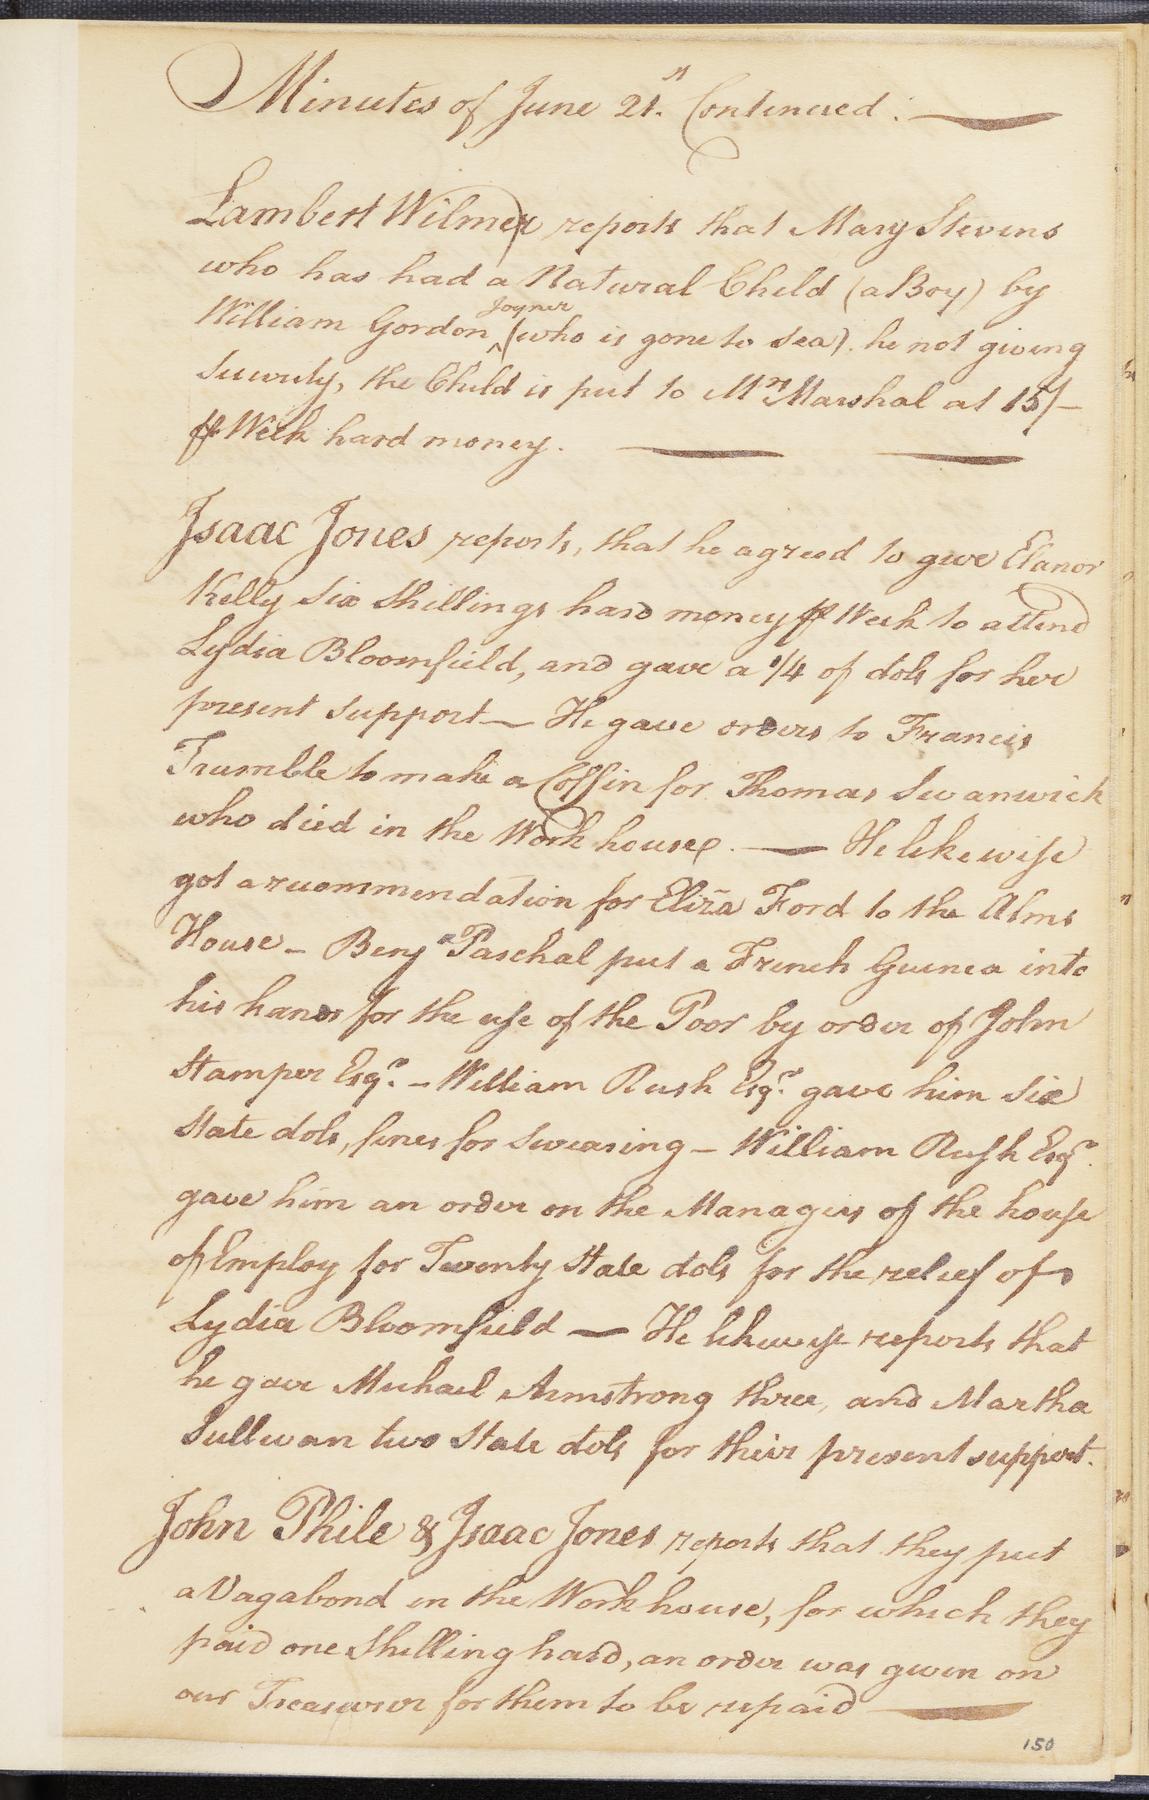 Minutes of June 21.st Continued:
Lambert Wilmer reports that Mary Stevens
who has had a Natural Child (a Boy) by
Joyner
William Gordon ^ (who is gone to sea). he not giving
Security, the Child is put to Mrs Marshal at 15/-
⅌ Week hard money.
Isaac Jones reports, that he agreed to give Elanor
Kelly Six Shillings hard money ⅌ Week to attend
Lydia Bloomfield, and gave a 1/4 of dols for her
present support — He gave orders to Francis
Trumble to make a Coffin for Thomas Swanwick
who died in the Work house. — He likewiſe
got a recommendation for Eliza Ford to the Alms
House - Benja Paschal put a French Guinea into
his hands for the uſe of the Poor by order of John
Stamper Esqr. - William Rush Esqr. gave him Six
State dols, fines for Swearing - William Ruſh Esqr.
gave him an order on the Managers of the houſe
of Employ for Twenty State dols for the relief of
Lydia Bloomfield — He likewiſe reports that
he gave Michael Armstrong three, and Martha
Sullivan two State dols for their present support.
John Phile & Isaac Jones reports that they put
a Vagabond in the Work house, for which they
paid one Shilling hard, an order was given on
our Treasurer for them to be repaid
150